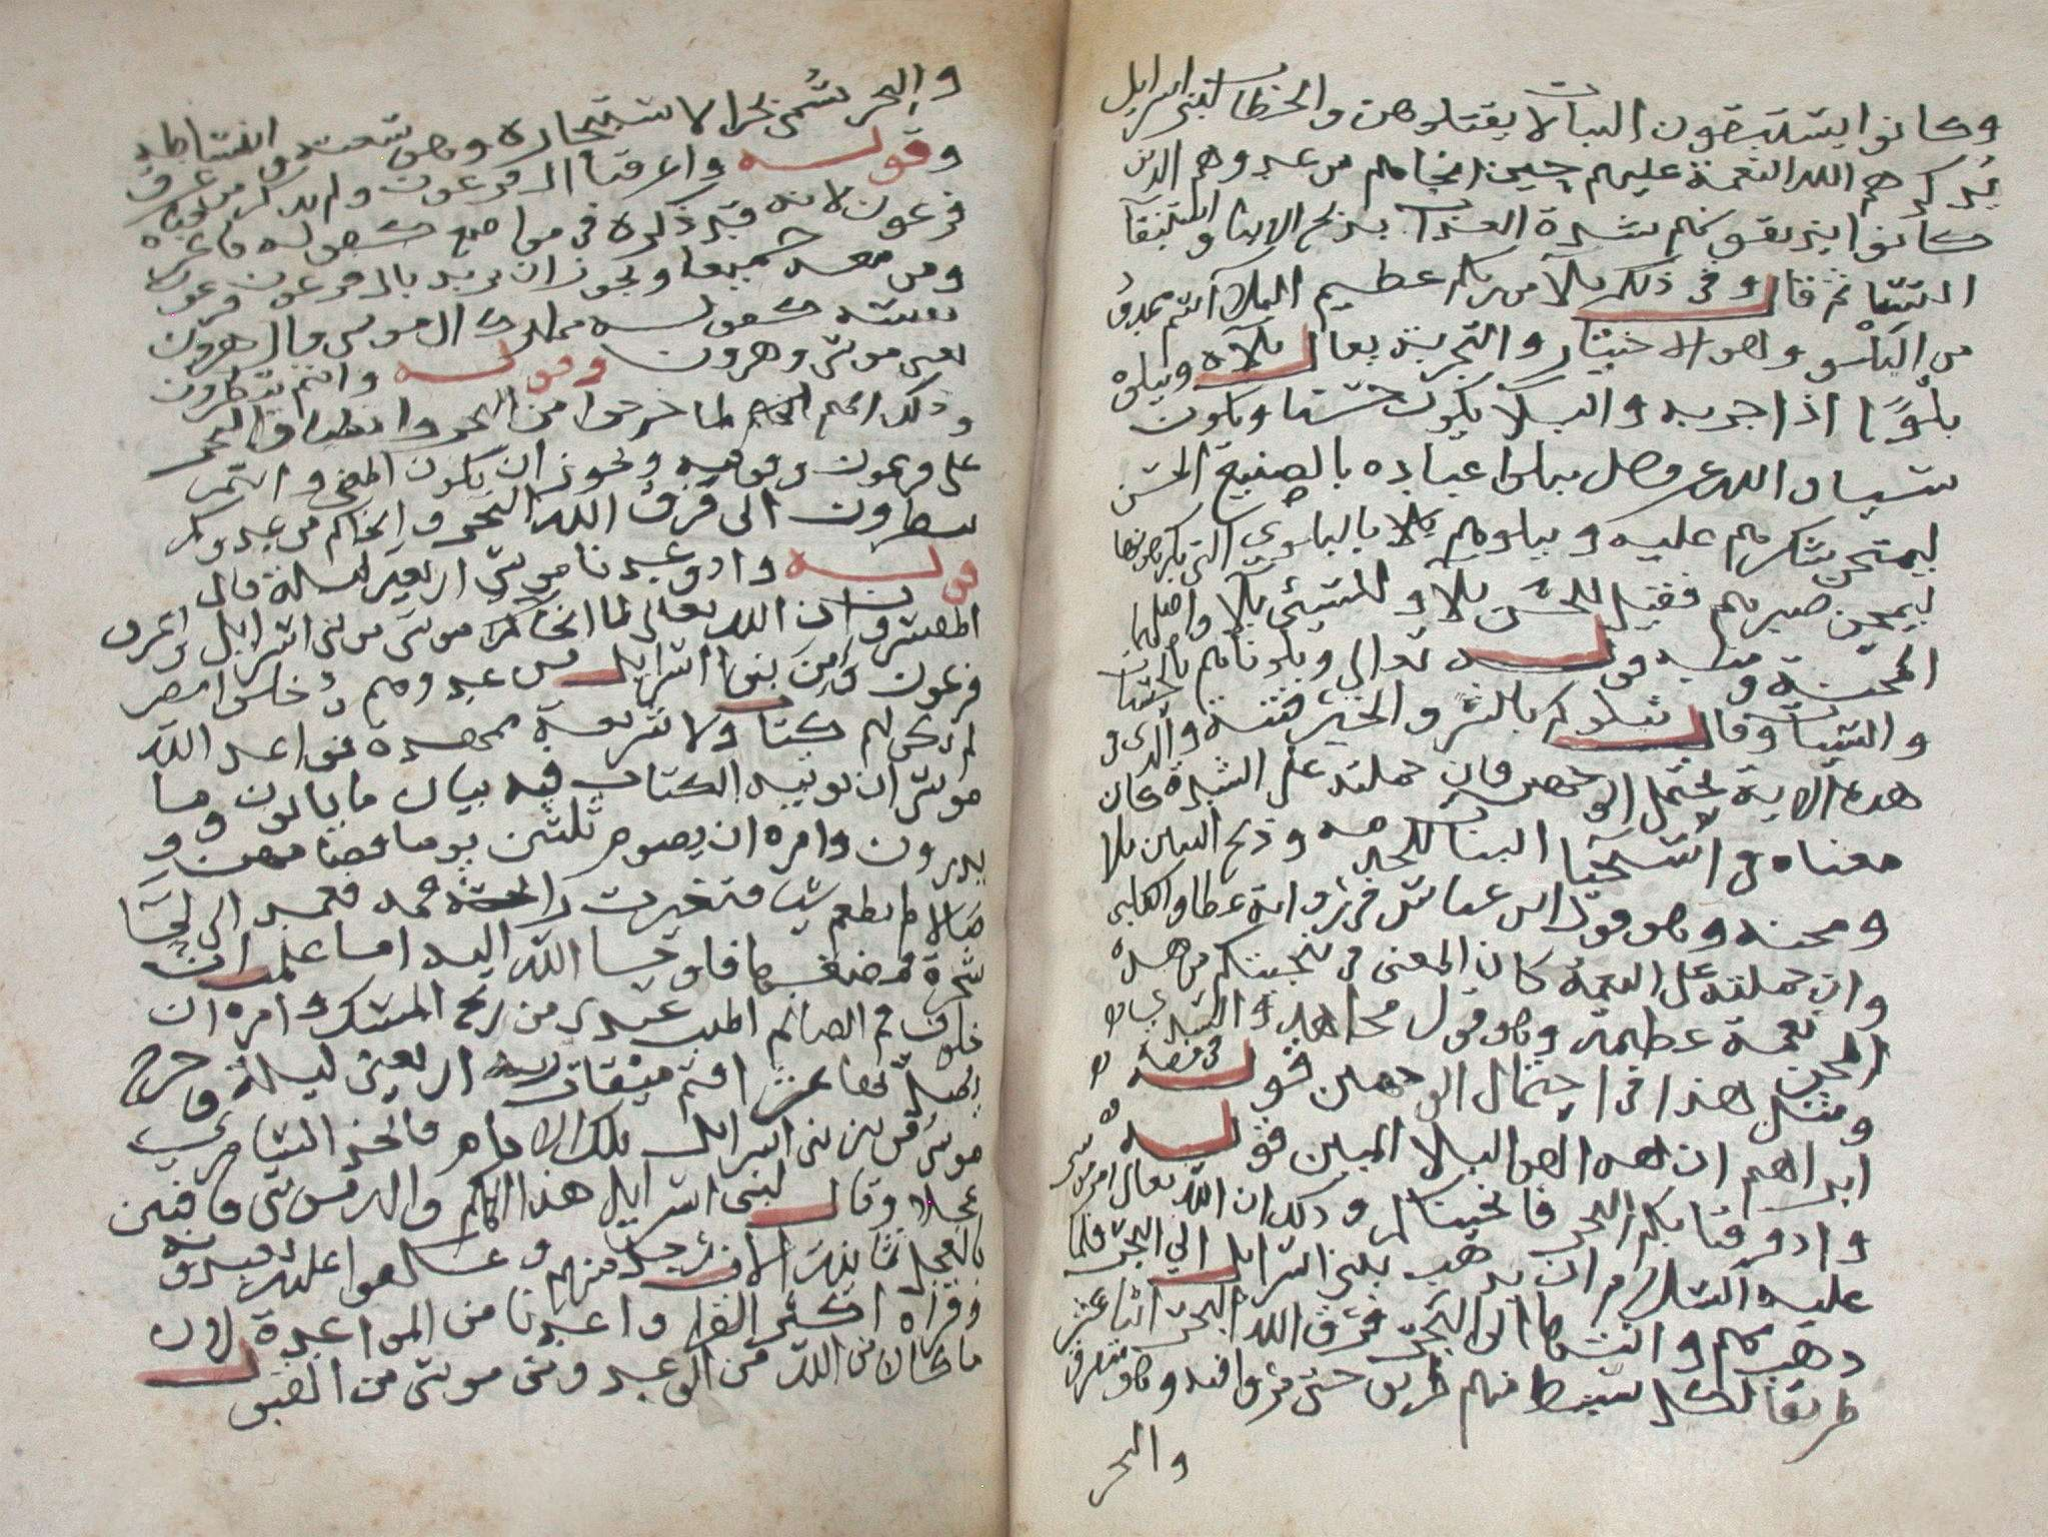 وكانوا يستبقون البنات لا يقتلوهن والخطاب لبني اسرايل
يذكرهم الله النعمة عليهم حين انجاهم من عدوهم الذين
كانوا يذيقونهم شدة العذاب بذبح الابنا واستبقآ
النسا ثم قال وفي ذلكم بلآ من ربكم عظيم البلاء اسم ممدود
من البلو وهو الاختبار والتجربة يقال بلاه ويبلوه
بلوًا اذا جربه والبلآ يكون حسنا ويكون
سيا والله عز وجل يبلوا عباده بالصنيع الحسن
ليمتحن شكرهم عليه ويبلوهم بالبلوى التي يكرهونها
ليمتحن صبرهم فقيل للحسن بلا وللسيئ بلا واصلها
المحنة ومنه قوله تعالى وبلوناهم بالحسنات
والسيات وقال نبلوكم بالشر والخير فتنة والذي في
هذه الاية يحتمل الوجهين فان حملته على الشدة كان
معناه في استحيا البنات للخدمة وذبح البنين بلا
ومحنة وهو قول ابن عباس في رواية عطا والكلبي
وان حملته على النعمة كان المعنى في تنجيتكم من هذه
المحن نعمة عظيمة وهو قول مجاهد والسدي
ومثل هذا في احتمال الوجهين قوله في قصة
ابراهيم ان هذا لهو البلا المبين قوله
واذ فرقنا بكم البحر فانجيناكم وذلك ان الله تعالى امر موسى
عليه السلام ان يذهب ببني اسرايل الى البحر فلما
ذهب بهم وانتهى الى البحر فرق الله البحر اثنا عشر
طريقا لكل سبط منهم طريق حتى
والبحر
والبحر سمي بحرا لاستبحاره وهو سعته وانبساطه
وقوله واغرقنا ال فرعون ولم يذكر
فرعون لانه قد ذكره في مواضع كقوله فاغرقناه
ومن معه جميعا ويجوز ان يريد بال فرعون فرعون
نفسه كقوله مما ترك ال موسى وال هرون
يعني موسى وهرون وقوله وانتم تنظرون
وذلك انهم لما خرجوا من البحر وانطباق البحر
على فرعون وقومه ويجوز ان يكون المعنى وانتم
تنظرون الى فرق الله البحر وانجاكم من عدوكم
قوله واذ وعدنا موسى اربعين ليلة قال
المفسرون ان الله تعالى لما انجا موسى من بني اسرايل واغرق
فرعون وامن بنوا اسرايل من عدوهم ودخلوا مصر
لم يكن لهم كتاب ولا شريعة ممهدة فواعد الله
موسى ان يوتيه الكتاب فيه بيان ما ياتون وما
يذرون وامره ان يصوم ثلثين يوما فصامهن و
صالا لم يطعم شيا فتغيرت رائحة فمه فعمد الى لحا
شجرة فمضغها فاوحى الله اليه اما علمت ان
خلوف فم الصائم اطيب عندي من ريح المسك وامره ان
يصلها بعشر فتم ميقات ربه اربعين ليلة وخرج
موسى من بين بني اسرايل تلك الايام فاتخذ السامري
عجلا وقال لبني اسرايل هذا الهكم واله موسى فافتتن
بالعجل ثمانية الاف رجل منهم وعكفوا عليه يعبدونه
وقراه اكثر القرا واعدنا من المواعدة لان
ما كان من الله من الوعد ومن موسى من القبول